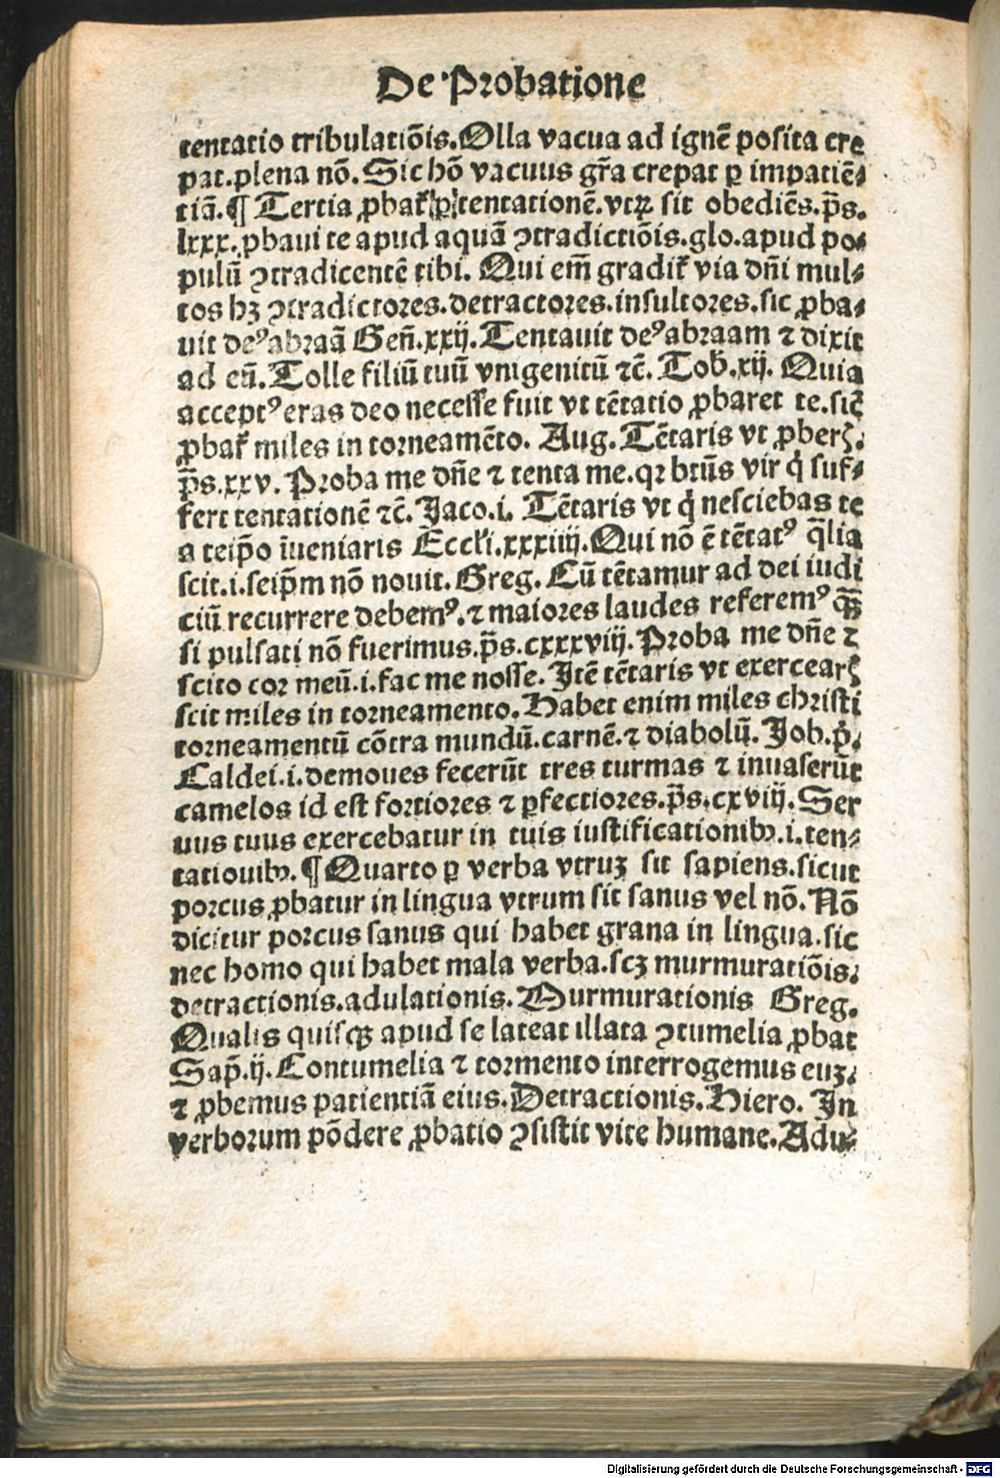 De Probatione
tentatio tribulatiõis.Olla vacua ad ignẽ posita cre
pat.plena nõ.Sic hõ vacuus gr̃a crepat ꝑ impatiẽ⸗
tiã.¶ Tertia ꝓbat᷑ ꝑ tentationẽ.vtꝝ sit obediẽs.p̃s.
lxxx.ꝓbaui te apud aquã ꝯtradictiõis.glo.apud po⸗
pulũ ꝯtradicentẽ tibi. Qui em̃ gradit᷑ via dñi mul⸗
tos hꝫ ꝯtradictores.detractores.insultores.sic ꝓba⸗
uit deꝰ abraã Geñ.xxij.Tentauit deꝰ abraam ⁊ dixit
ad eũ.Tolle filiũ tuũ vnigenitũ ⁊c̃. Tob̃.xij. Quia
acceptꝰ eras deo necesse fuit vt tẽtatio ꝓbaret te.sic̃
ꝓbat᷑ miles in torneamẽto. Aug. Tẽtaris vt ꝓberꝭ.
p̃s.xxv. Proba me dñe ⁊ tenta me.qꝛ btũs vir q̇ suf⸗
fert tentationẽ ⁊c̃. Jaco.i. Tẽtaris vt q̇ nesciebas te
a teip̃o ĩueniaris Eccl̃i.xxxiiij.Qui nõ ẽ tẽtatꝰ q̃lia
scit.i.seip̃m nõ nouit. Greg. Cũ tẽtamur ad dei iudi
ciũ recurrere debemꝰ.⁊ maiores laudes referemꝰ q̃ꝫ
si pulsati nõ fuerimus.p̃s.cxxxviij.Proba me dñe ⁊
scito cor meũ.i.fac me nosse. Jtẽ tẽtaris vt exercearꝭ
scit miles in torneamento.Habet enim miles christi
torneamentũ cõtra mundũ.carnẽ.⁊ diabolũ.Job.p̊.
Caldei.i.demoues fecerũt tres turmas ⁊ inuaserũt
camelos id est fortiores ⁊ ꝑfectiores.p̃s.cxviij.Ser
uus tuus exercebatur in tuis iustificationibꝰ.i.ten⸗
tatiouibꝰ.¶ Quarto ꝑ verba vtruꝫ sit sapiens.sicut
porcus ꝓbatur in lingua vtrum sit sanus vel nõ.Nõ
dicitur porcus sanus qui habet grana in lingua.sic
nec homo qui habet mala verba.scꝫ murmuratiõis.
detractionis.adulationis.Murmurationis Greg.
Qualis quisqꝫ apud se lateat illata ꝯtumelia ꝓbat
Sap̃.ij.Contumelia ⁊ tormento interrogemus euꝫ.
⁊ ꝓbemus patientiã eius.Detractionis.Hiero. Jn
verborum põdere ꝓbatio ꝯsistit vite humane.Adu⸗
Digitalisierung gefördert durch die Deutsche Forschungsgemeinschaft - DFG